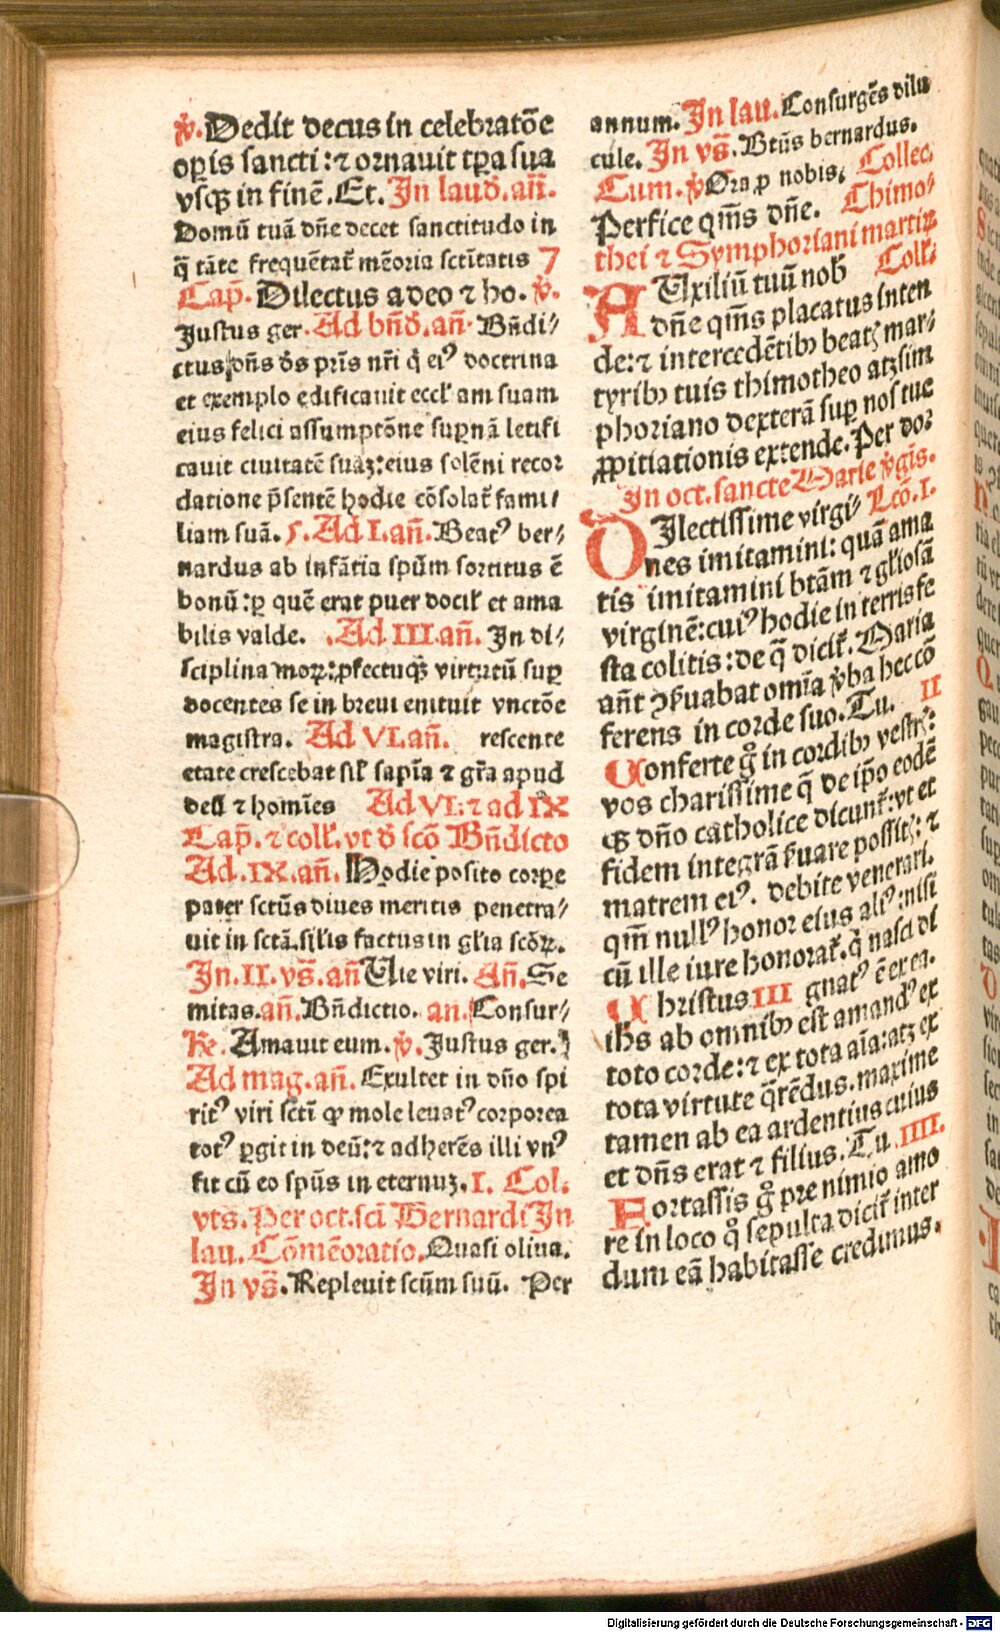 ꝟ. Dedit decus in celebratōe
oꝑis sancti: ⁊ ornauit tꝑa sua
vsqꝫ in finē. Et. In laud̄. añ.
Domū tuā dn̄e decet sanctitudo in
q̄ tāte frequētat᷑ mēoria sctītatis 7
Cap̄. Dilectus a deo ⁊ ho. ꝟ.
Justus ger. Ad bn̄d̄. añ. Bn̄di/
ctus dn̄s d̄s pr̄is nr̄i q̇ eiꝰ doctrina
et exemplo edificauit eccl̄am suam
eius felici assumptōne suꝑnā letifi
cauit ciuitatē suāꝫ: eius solēni recor
datione p̄sentē hodie cōsolat᷑ fami/
liam suā. Ad I. añ. Beatꝰ ber/
nardus ab infātia spūm sortitus ē
bonū: ꝑ quē erat puer docil̄ et ama
bilis valde. Ad III. añ. In di/
sciplina moꝝ: ꝓfectuqꝫ virtutū suꝑ
docentes se in breui enituit vnctōe
magistra. Ad VI. añ. rescente
etate crescebat sil̄ sapīa ⁊ gr̄a apud
deū ⁊ homīes Ad VI: ⁊ ad IX
Cap̄. ⁊ coll̄. vt d̄ scō Bn̄dicto
Ad. IX. añ. Hodie posito corꝑe
pater sctūs diues meritis penetra/
uit in sctā. sil̄is factus in gl̄ia scōꝝ.
In. II. vs̄. añ Vie viri. Añ. Se
mitas. añ. Bn̄dictio. an. Consur/
℞. Amauit eum. ꝟ. Justus ger.
Ad mag. añ. Exultet in dn̄o spi
ritꝰ viri sctī qꝫ mole leuatꝰ corporea
totꝰ ꝑgit in deū: ⁊ adherēs illi vnꝰ
fit cū eo spūs in eternuꝫ. I. Col.
vts. Per oct. sci Bernardi In
lau. Cōmēoratio. Quasi oliua.
In vs̄. Repleuit scūm suū. Per
annum. In lau. Consurgēs dilu
cule. In vs̄. Btūs bernardus.
Cum. ꝟ Ora ꝓ nobis. Collec.
Perfice qm̄s dn̄e. Thimo/
thei ⁊ Symphoriani martiꝝ
AUxiliū tuū nob̄ Coll̄:
dn̄e qm̄s placatus inten
de: ⁊ intercedētibꝫ beatꝫ mar/
tyribꝫ tuis thimotheo atqꝫ sim
phoriano dexterā suꝑ nos tue
ꝓpitiationis extende. Per do:
In oct. sancte Marie ꝟgis.
DIlectissime virgi/ Lcō. I.
nes imitamini: quā ama
tis imitamini btām ⁊ gl̄iosā
virginē: cuiꝰ hodie in terris fe
sta colitis: de q̄ dicit᷑. Maria
aūt ꝯẜuabat omīa ꝟba hec cō
ferens in corde suo. Tu. II
Conferte ḡ in cordibꝫ vestr̄:
vos charissime q̄ de ip̄o eodē
qꝫ dn̄o catholice dicunt᷑: vt et
fidem integrā ẜuare possitꝫ: ⁊
matrem eiꝰ. debite venerari.
qm̄ nullꝰ honor eius aliꝰ: nisi
cū ille iure honorat᷑. q̇ nasci di
Christus III gnatꝰ ē ex ea.
ih̄s ab omnibꝫ est amandꝰ ex
toto corde: ⁊ ex tota aīa: atqꝫ ex
tota virtute q̄rēdus. maxime
tamen ab ea ardentius cuius
et dn̄s erat ⁊ filius. Tu. IIII.
Fortassis ḡ pre nimio amo
re in loco q̊ sepulta dicit᷑ inter
dum eā habitasse credimus.
Digitalisierung gefördert durch die Deutsche Forschungsgemeinschaft - DFG